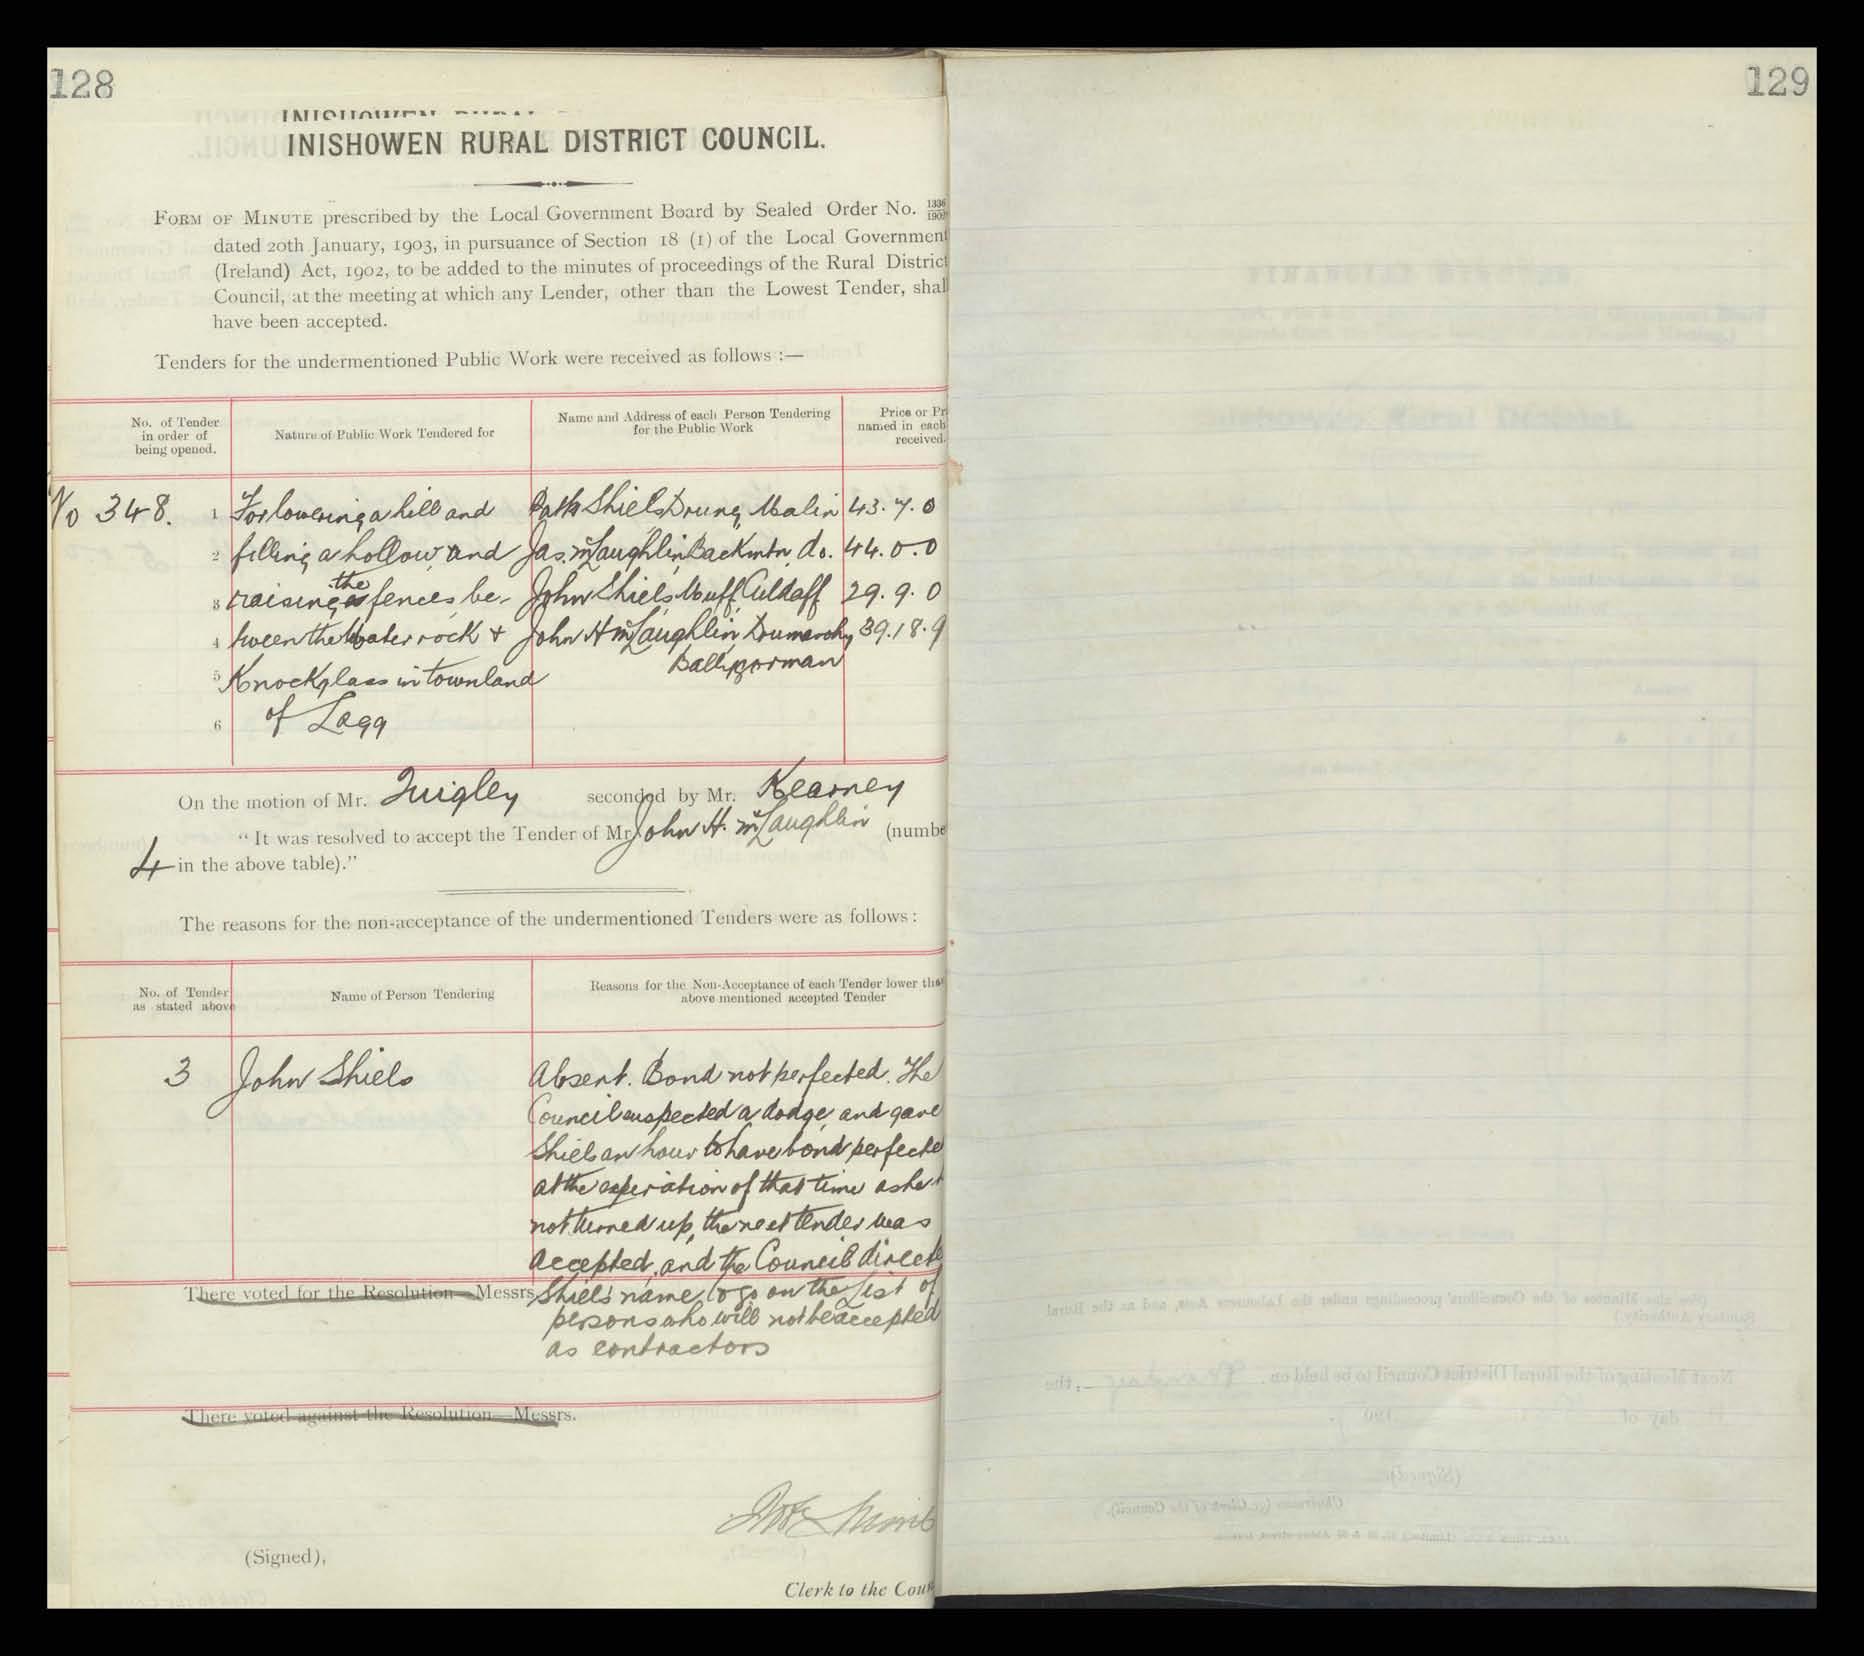 128
129
INISHOWEN RURAL DISTRICT COUNCIL.
FORM OF MINUTE prescribed by the Local Government Board by Sealed Order No.
dated 20th January, 1903, in pursuance of Section 18 (1) of the Local Government
(Ireland) Act, 1902, to be added to the minutes of proceedings of the Rural District
Council, at the meeting at which any Lender, other than the Lowest Tender, shall
have been accepted.
Tenders for the undermentioned Public Work were received as follows :—
No. of Tender in order of being opened.
Nature of Public Work Tendered for
Name and Address of each Person Tendering for the Public Work
Price or Pr named in each received.
No 348. 1 For lowering a hill and Patk Shiels Drung Malin 43.7.0
2 filling a hollow and Jas. McLaughlin Backmtn do. 44.0.0
3 raising the fences be- John Shiels Muff Culdaff 29.9.0
4 tween the Water rock & John H McLaughlin, 39.18.9
Ballygorman
5 Knockglass in townland
6 of Lagg
On the motion of Mr. Quigley seconded by Mr. Kearney
"It was resolved to accept the Tender of Mr John H. McLaughlin (numbe
4 in the above table)."
The reasons for the non-acceptance of the undermentioned Tenders were as follows :
No. of Tender as stated above
Name of Person Tendering
Reasons for the Non-Acceptance of each Tender lower than above mentioned accepted Tender
3 John Shiels Absent. Bond not perfected. The
Council suspected a dodge, and gave
Shiels an hour to have bond perfecte
at the expiration of that time as he
not turned up, the next tender was
accepted, and the Council directe
There voted for the Resolution—Messrs
Shiels' name to go on the List of
persons who will not be accepted
as contractors
There voted against the Resolution—Messrs.
(Signed),
Clerk to the Coun